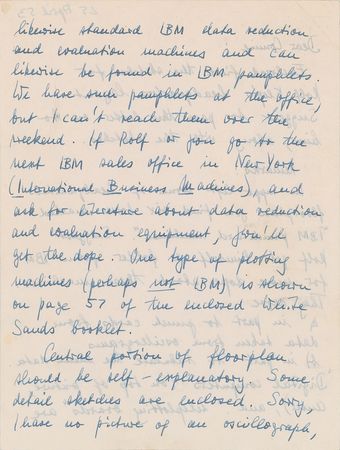 likewise standard IBM data reduction
and evaluation machines and can
likewise be found in IBM pamphlets.
We have such pamphlets at the office,
but I can't reach them over the
weekend. If Rolf or you go to the
next IBM sales office in New York
(International Business Machines), and
ask for literature about data reduction
and evaluation equipment, you'll
get the dope. One type of plotting
machines (perhaps not IBM) is shown
on page 57 of the enclosed White
Sands booklet.
Central portion of floorplan
should be self-explanatory. Some
detail sketches are enclosed. Sorry,
I have no picture of an oscillograph,